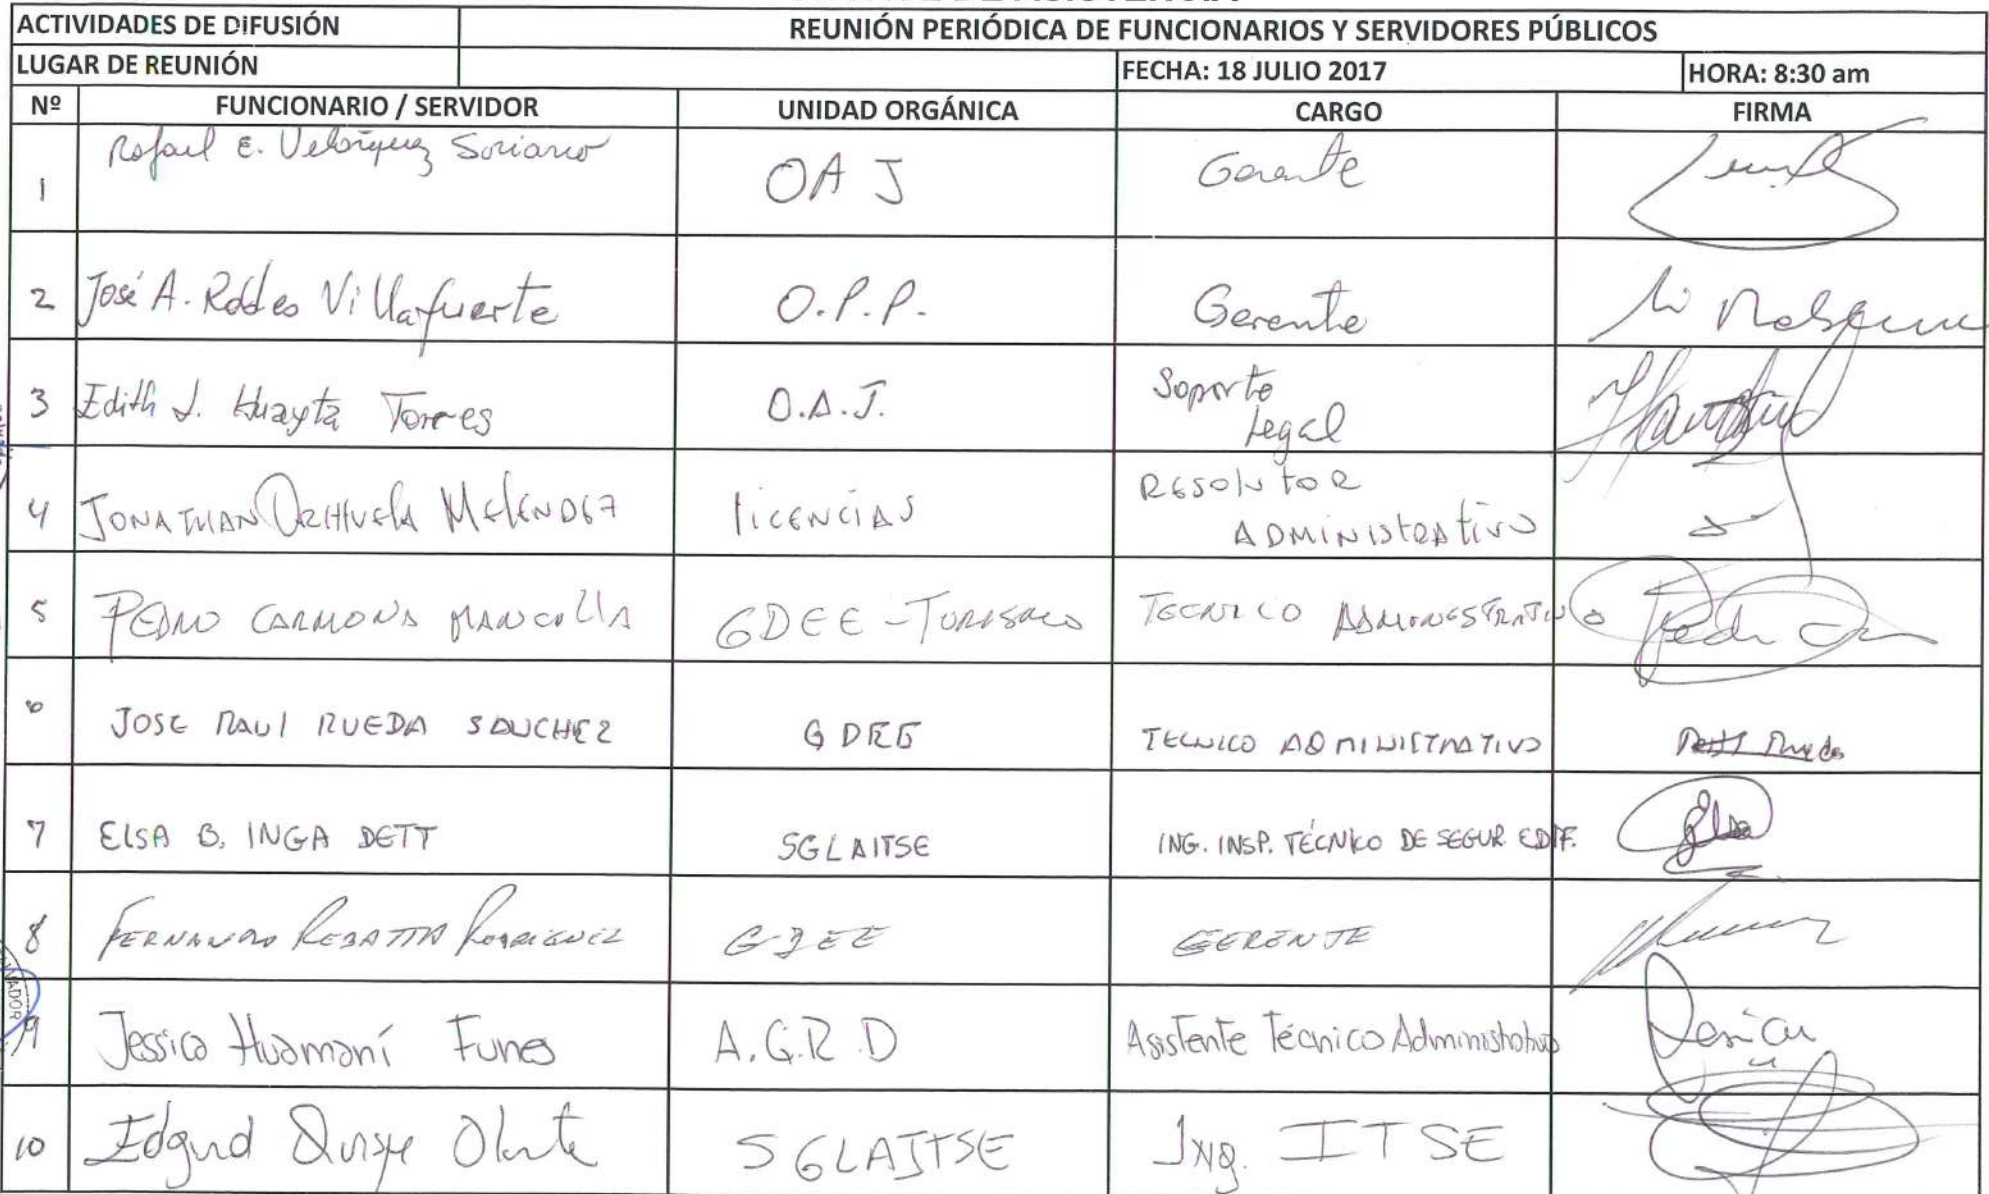 ACTIVIDADES DE DIFUSIÓN REUNIÓN PERIÓDICA DE FUNCIONARIOS Y SERVIDORES PÚBLICOS
LUGAR DE REUNIÓN FECHA: 18 JULIO 2017 HORA: 8:30 am
Nº FUNCIONARIO / SERVIDOR UNIDAD ORGÁNICA CARGO FIRMA
1 Rafael E. Velásquez Soriano OAJ Gerente
2 José A. Robles Villafuerte O.P.P. Gerente
3 Edith J. Huayta Torres O.A.J. Soporte
Legal
4 JONATHAN ORIHUELA MELENDEZ licencias RESOLUTOR
ADMINISTRATIVO
5 PEDRO CARMONA MANCILLA GDEE - TURISMO TECNICO ADMINISTRATIVO
6 JOSE RAUL RUEDA SANCHEZ GDEE TECNICO ADMINISTRATIVO
7 ELSA B. INGA DETT SGLAITSE ING. INSP. TÉCNICO DE SEGUR. EDIF. Elsa
8 FERNANDO REBATTA RODRIGUEZ GDEE GERENTE
9 Jessica Huamaní Funes A.G.R.D Asistente Técnico Administrativo
10 Edgard Quispe Olarte SGLAITSE Ing. ITSE